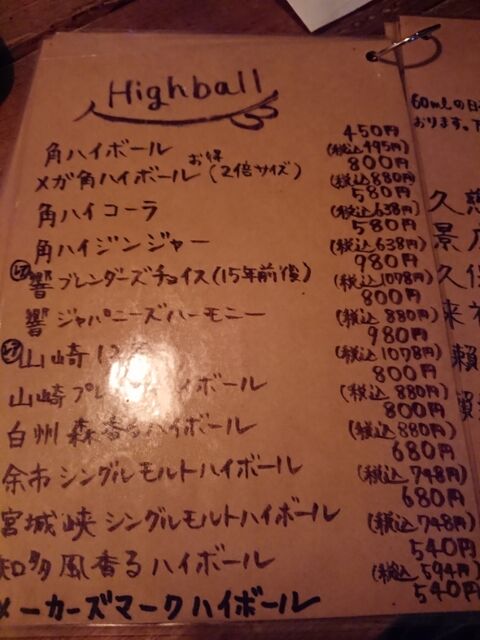 Highball
角ハイボール 450円
(税込495円)
お得
メガ角ハイボール (2倍サイズ) 800円
(税込880円)
角ハイコーラ 580円
(税込638円)
角ハイジンジャー 580円
(税込638円)
響 ブレンダーズチョイス(15年前後) 980円
(税込1078円)
響 ジャパニーズハーモニー 800円
(税込880円)
山崎 980円
(税込1078円)
山崎 ハイボール 800円
(税込880円)
白州 森香るハイボール 800円
(税込880円)
余市 シングルモルトハイボール 680円
(税込748円)
宮城峡 シングルモルトハイボール 680円
(税込748円)
知多 風香るハイボール 540円
(税込594円)
メーカーズマークハイボール 540円
60mlの
おります。
久
景
久保
来